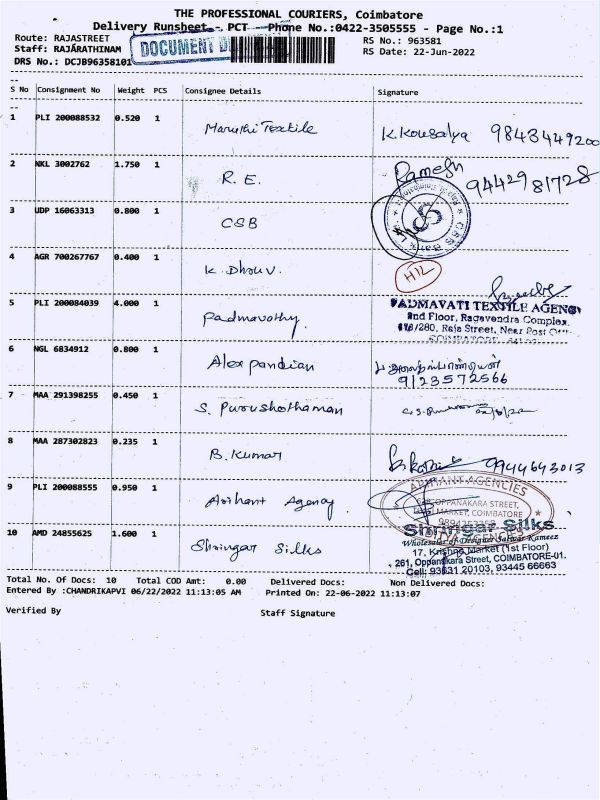 THE PROFESSIONAL COURIERS, Coimbatore
Delivery Runsheet - PCT Phone No.:0422-3505555 - Page No.:1
Route: RAJASTREET RS No.: 963581
Staff: RAJARATHINAM DOCUMENT RS Date: 22-Jun-2022
DRS No.: DCJB96358101
S No Consignment No Weight PCS Consignee Details Signature
1 PLI 200088532 0.520 1 Maruthi Textile K.Kousalya 9843449200
2 NKL 3002762 1.750 1 R. E. Ramesh 9442981728
3 UDP 16063313 0.800 1 CSB
4 AGR 700267767 0.400 1 K. Dhruv. H12
5 PLI 200084039 4.000 1 Padmavathy.
PADMAVATI TEXTILE AGENCY
2nd Floor, Ragavendra Complex,
280, Raja Street, Near Post
6 NGL 6834912 0.800 1 Alex pandian
9123572566
7 MAA 291398255 0.450 1 S. Purushothaman
8 MAA 287302823 0.235 1 B. Kumar 9944643013
9 PLI 200088555 0.950 1 Arihant Agency
ARIHANT AGENCIES
OPPANAKARA STREET,
MARKET, COIMBATORE
10 AMD 24855625 1.600 1 Shringar Silks
Shringar Silks
Wholesaler of Designer Salwar Kameez
17, Krishna Market (1st Floor)
261, Oppanakara Street, COIMBATORE-01.
Cell: 93631 20103, 93445 66663
Total No. Of Docs: 10 Total COD Amt: 0.00 Delivered Docs: Non Delivered Docs:
Entered By :CHANDRIKAPVI 06/22/2022 11:13:05 AM Printed On: 22-06-2022 11:13:07
Verified By Staff Signature